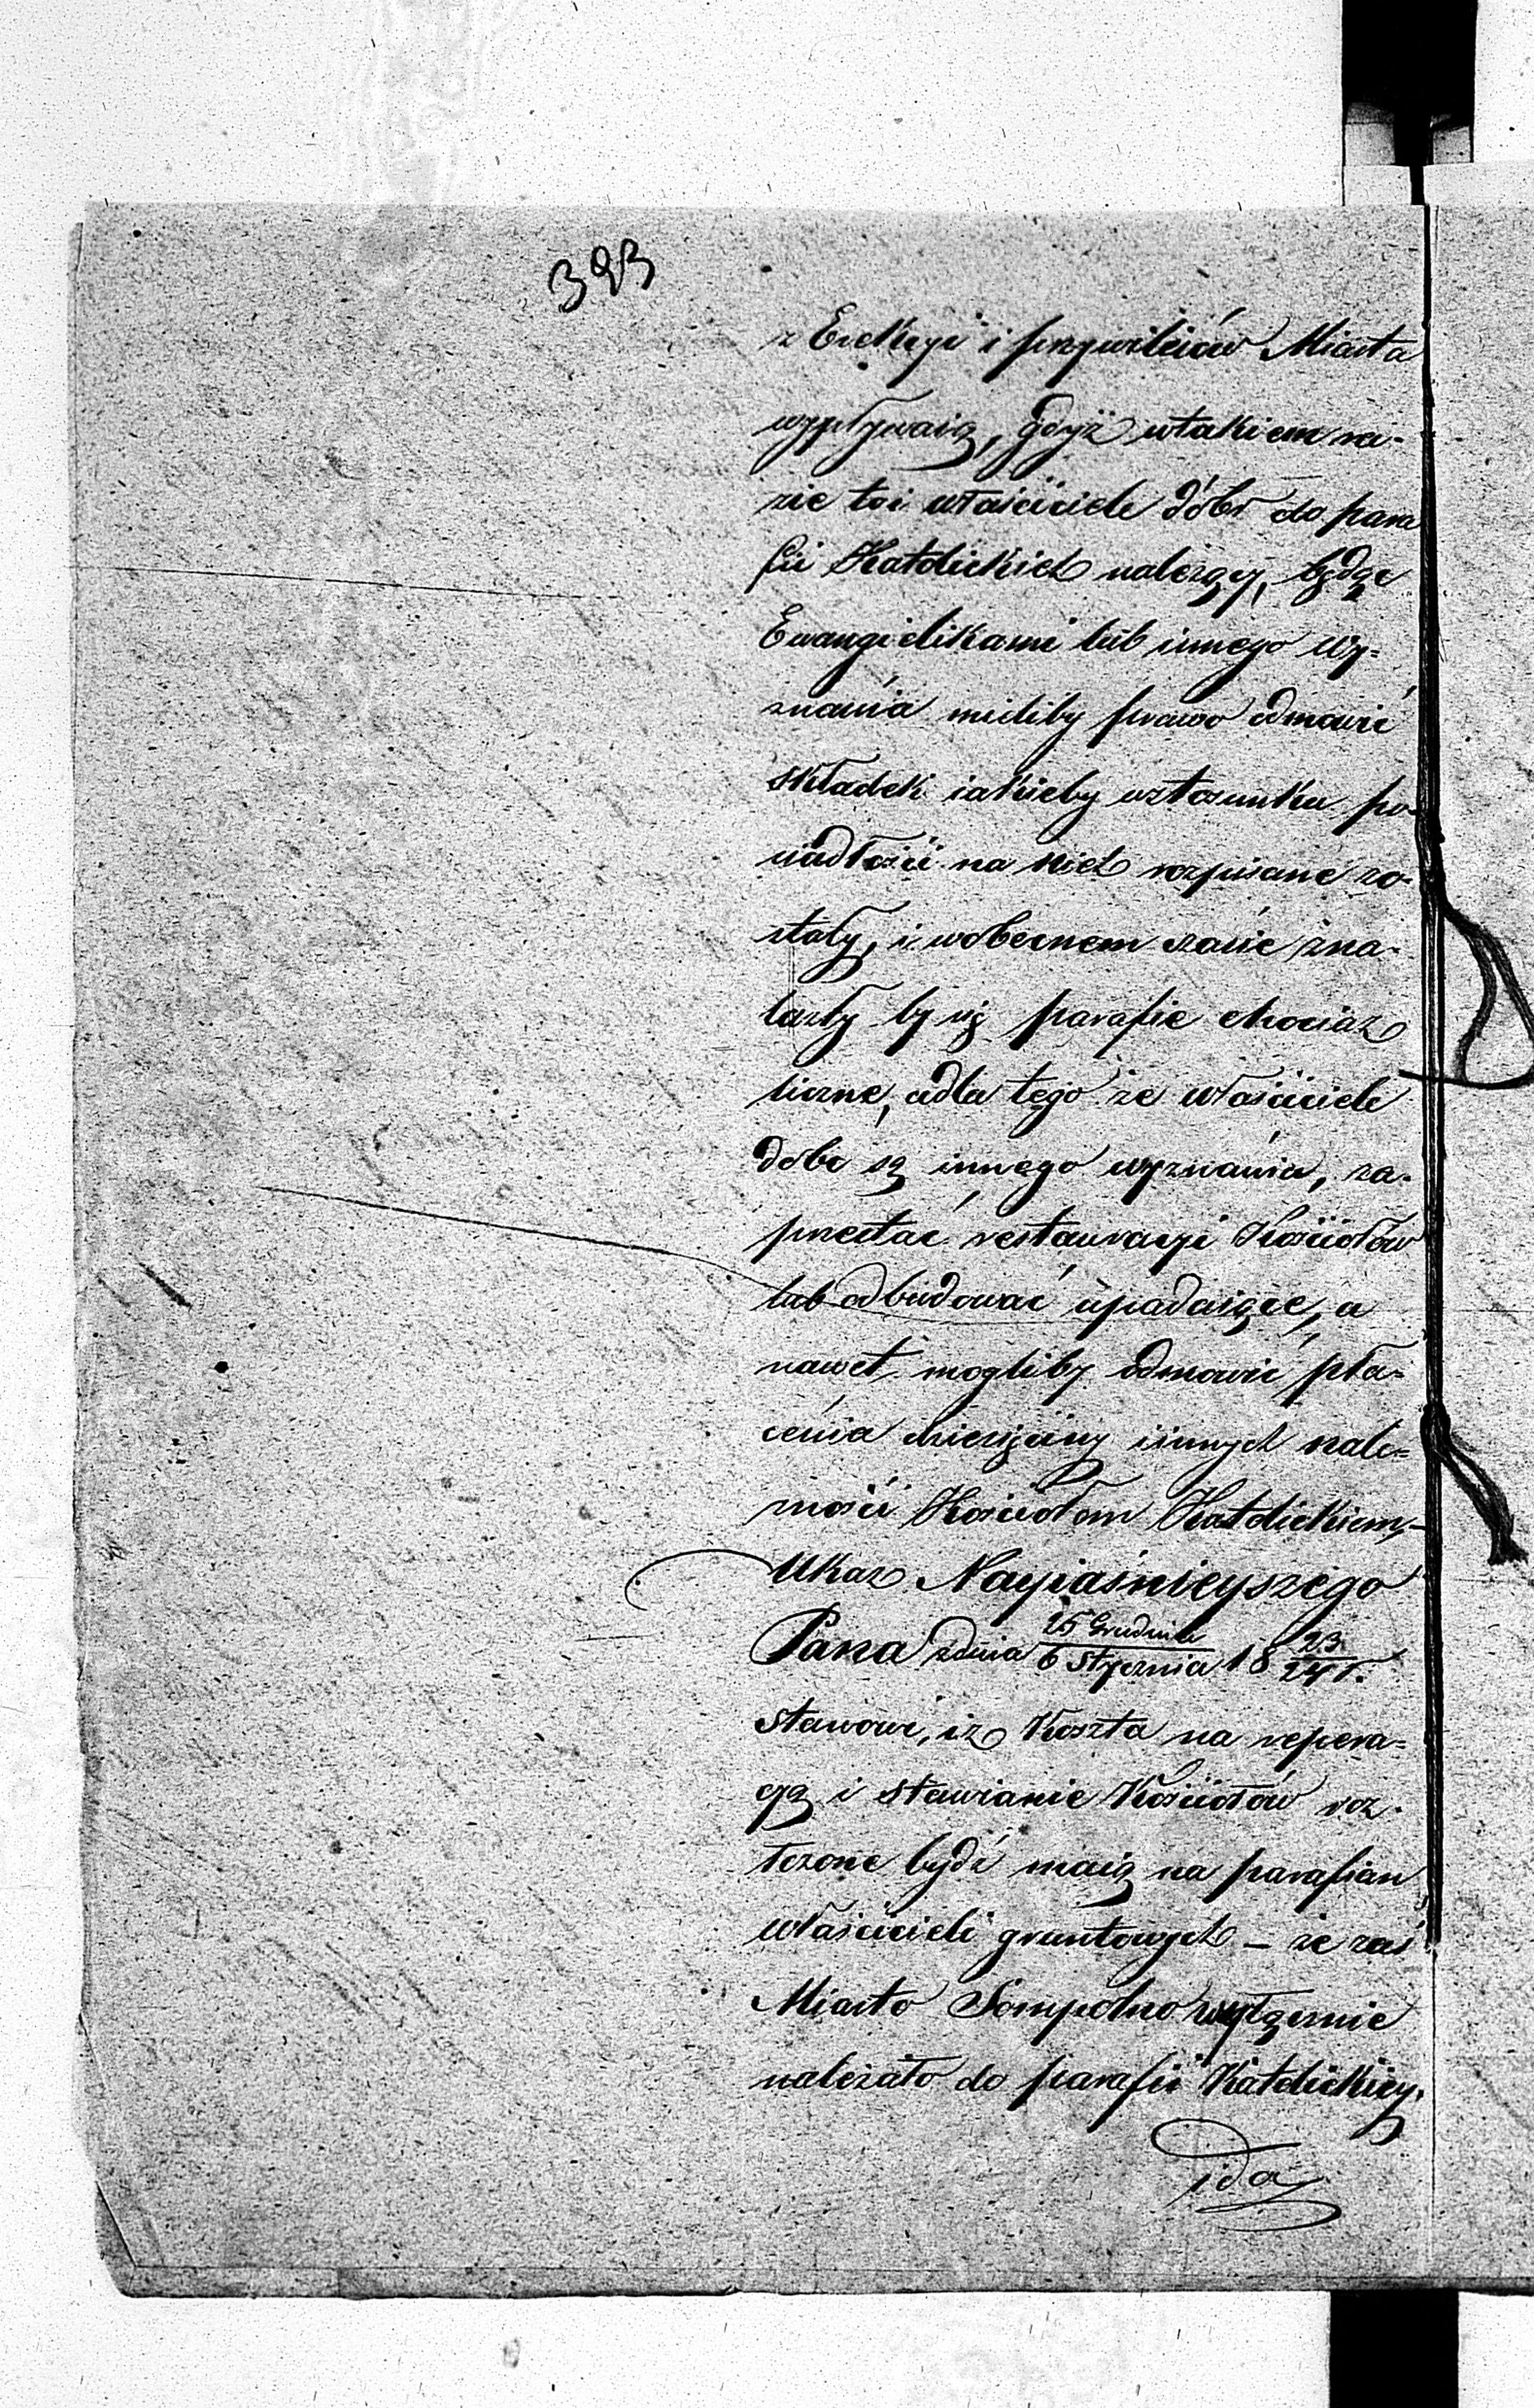 393
z Erekcyi i przywileiów Miasta
wypływaią, gdyż wtakiem ra-
zie toi właściciele dóbr do para
fii Katolickich należący, będąc
Ewangielikami lub innego wy-
znania mieliby prawo odmówić
składek iakieby wstosunku po-
siadłości na nich rozpisane zo-
stały, i wobecnem czasie zna-
lazły by się parafie chociaż
liczne, adla tego że właściciele
dóbr są innego wyznania, za-
przestać restauracyi Kościołów
lub odbudować upadaiące, a
nawet mogliby odmówić pła-
cenia mesznego iinnych nale-
żności Kościołom Katolickiem,
Ukaz Nayiaśnieyszego
Pana zdnia 25 Grudnia / 6 Stycznia 18 23/24 r.
stanowi, iż Koszta na repera-
cyą i stawianie Kościołów roz-
łożone bydź maią na parafian
właścicieli gruntowych – że zaś
Miasto Sompolno wyłącznie
należało do parafii Katolickiey,
ida